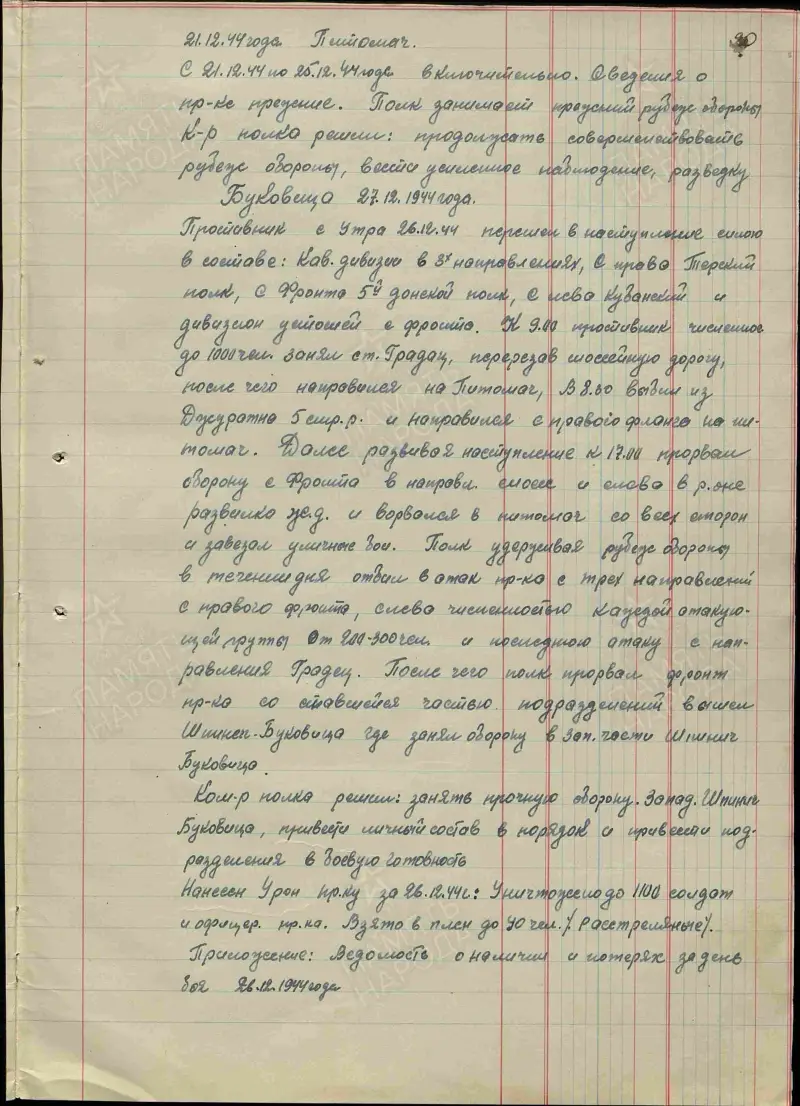 90
21.12.44 года Питомач.
С 21.12.44 по 25.12.44 года включительно. Сведения о
пр-ке прежние. Полк занимает прежний рубеж обороны
К-р полка решил: продолжать совершенствовать
рубеж обороны, вести усиленное наблюдение, разведку
Буковица 27.12.1944 года.
Противник с утра 26.12.44 перешел в наступление силою
в составе: Кав. дивизии в 3х направлениях, С права Терский
полк, С Фронта 5й донской полк, С лева Кубанский и
дивизион усташей с фронта. К 9.00 противник численно
до 1000 чел. занял ст. Градац, перерезав шоссейную дорогу,
после чего направился на Питомач, В 8.30 выбил из
Джуратна 5 стр.р. и направился с правого фланга на пи-
томач. Далее развивая наступление к 17.00 прорвал
оборону с Фронта в направл. шоссе и слева в р-оне
развилка ж.д. и ворвался в питомач со всех сторон
и завезал уличные бои. Полк удерживая рубеж обороны
в течении дня отбил 6 атак пр-ка с трех направлений
с правого фронта, слева численностью каждой атакую-
щей группы от 200-300 чел и последнюю атаку с нап-
равления Градец. После чего полк прорвал фронт
пр-ка со ставшейся частью подразделений вышел
Шпинеч-Буковица где занял оборону в Зап. части Шпинич
Буковица.
Ком-р полка решил: занять прочную оборону. Запад. Шпинич
Буковица, привести личный состав в порядок и привести под-
разделения в боевую готовность
Нанесен Урон пр.ку за 26.12.44 г: Уничтожено до 1100 солдат
и офицер. пр.ка. Взято в плен до 40 чел. /. Расстреляные/.
Приложение: Ведомость о наличии и потерях за день
боя 26.12.1944 года
ПАМЯТЬ
НАРОДА